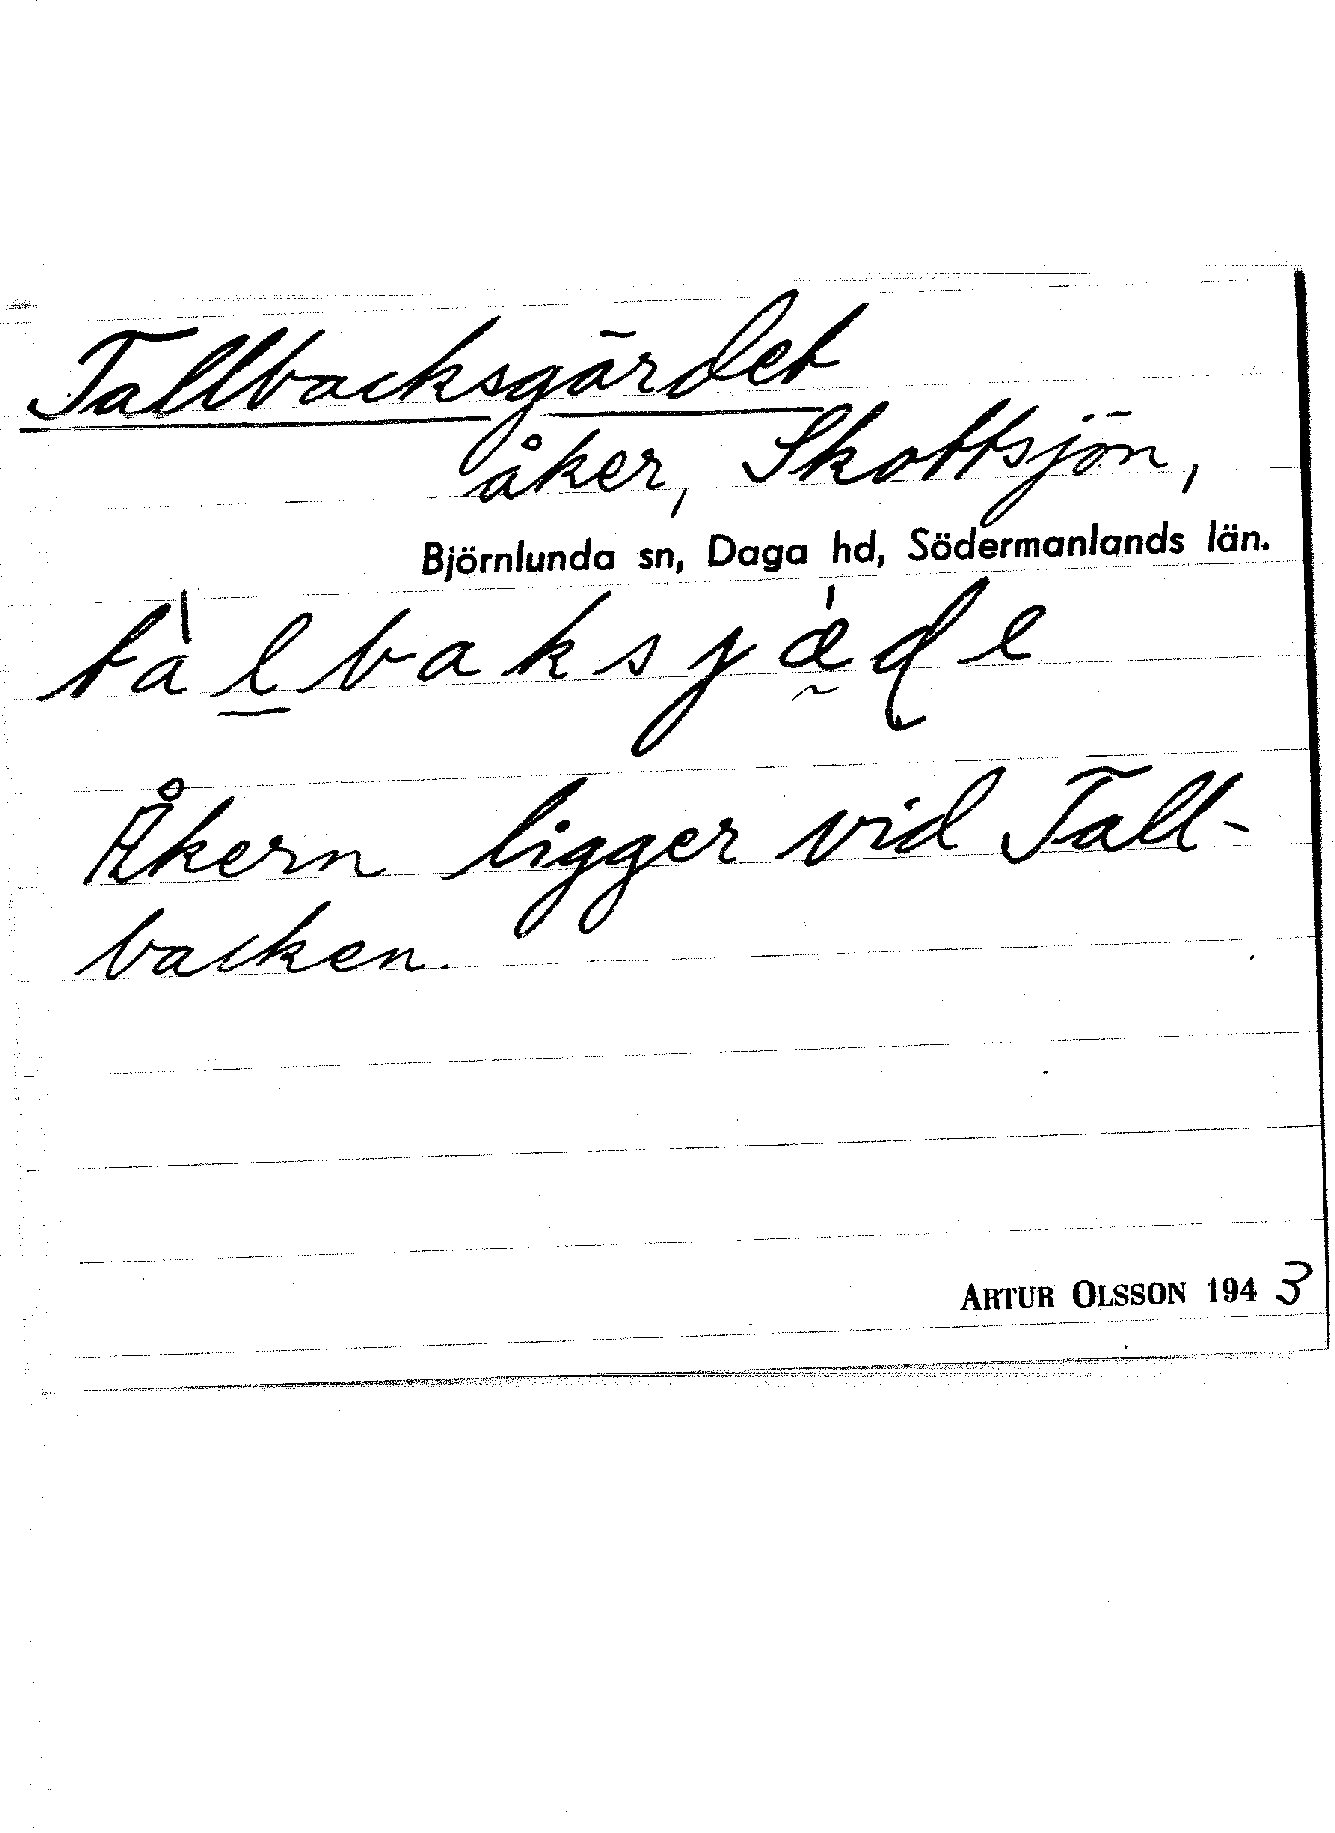 Tallbacksgärdet
åker, Skottsjön,
Björnlunda sn, Daga hd, Södermanlands län.
tàl̲baksjæ̰̀ɖe
Åkern ligger vid Tall-
backen.
ARTUR OLSSON 1943